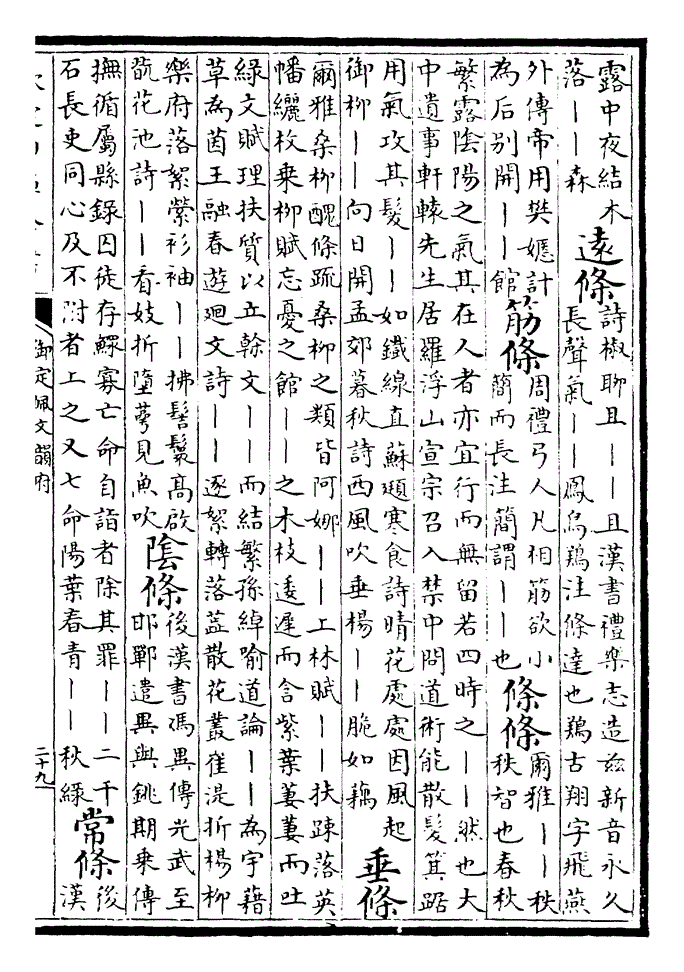 露中夜結木落丨丨森 遠條 詩椒聊且丨丨且漢書禮樂志造兹新音永久長聲氣丨丨鳳鳥鶏注條達也鶏古翔字飛燕
外傳帝用樊嫕計為后别開丨丨館 筋條 周禮弓人凡相筋欲小簡而長注簡謂丨丨也 條條 爾雅丨丨秩秩智也春秋
繁露陰陽之氣其在人者亦宜行而無留若四時之丨丨然也大
中遺事軒轅先生居羅浮山宣宗召入禁中問道術能散髮箕踞
用氣攻其髮丨丨如鐵線直蘇頲寒食詩晴花處處因風起
御柳丨丨向日開孟郊暮秋詩西風吹垂楊丨丨脆如藕 垂條
爾雅桑柳醜條疏桑柳之類皆阿娜丨丨上林賦丨丨扶踈落英
幡纚枚乘柳賦忘憂之館丨丨之木枝逶遲而含紫葉萋萋而吐
綠文賦理扶質以立幹文丨丨而結繁孫綽喻道論丨丨為宇藉
草為茵王融春遊廻文詩丨丨逐絮轉落蕋散花叢崔湜折楊柳
樂府落絮縈衫袖丨丨拂髻鬟高啟翫花池詩丨丨看妓折墮蕚見魚吹 陰條 後漢書馮異傳光武至邯鄲遣異與銚期乘傳
撫循屬縣錄囚徒存鰥寡亡命自詣者除其罪丨丨二千石長吏同心及不附者上之又七命陽葉春青丨丨秋綠 常條 後漢
御定佩文韻府
二十九